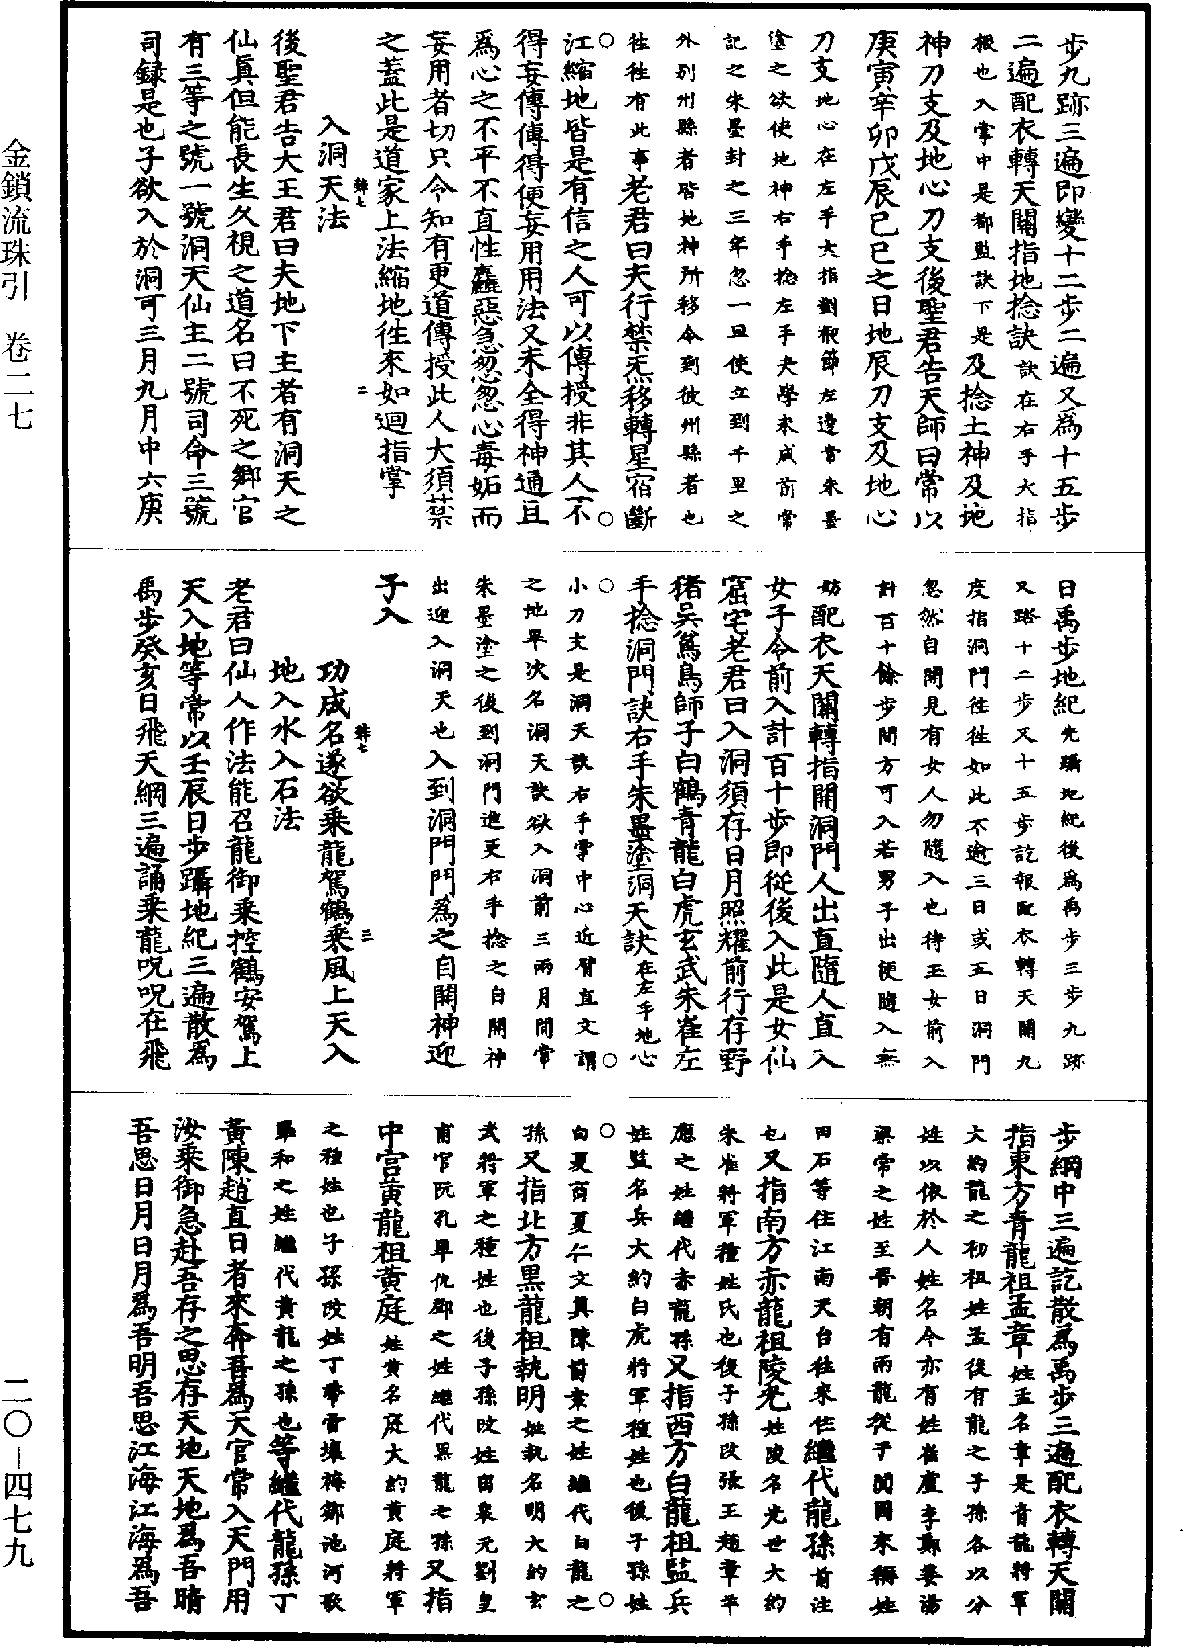 金鎖流珠引 卷二七
二〇－四七九
步九跡三遍即變十二步二遍又爲十五步
二遍配衣轉天關指地捻訣訣在右手大指
根也入掌中是都監訣下是及捻土神及地
神刀支及地心刀支後聖君告天師曰常以
庚寅辛卯戊辰己巳之日地辰刀支及地心
刀支地心在左手大指劃報節左邊當朱墨
塗之欲使地神右手捻左手夬學未成前常
記之朱墨封之三年忽一旦使立到千里之
外別州縣者皆地神所移令到彼州縣者也
往往有此事老君曰夫行禁炁移轉星宿斷
江縮地皆是有信之人可以傳授非其人不
得妄傳傳得便妄用用法又未全得神通且
爲心之不平不直性麤惡急忽忽心毒妬而
妄用者切只今知有更道傳授此人大須禁
之蓋此是道家上法縮地往來如迴指掌
入洞天法
後聖君告大王君曰夫地下主者有洞天之
仙眞但能長生久視之道名曰不死之鄉官
有三等之號一號洞天仙主二號司命三號
司錄是也子欲入於洞可三月九月中六庚
日禹步地紀先躡地紀後爲禹步三步九跡
又踏十二步又十五步訖報配衣轉天關九
度指洞門往往如此不逾三日或五日洞門
忽然自開見有女人勿隨入也待玉女前入
計百十餘步間方可入若男子出便隨入無
妨配衣天關轉指開洞門人出直隨人直入
女子令前入計百十步即從後入此是女仙
窟宅老君曰入洞須存日月照耀前行存野
猪吳篤鳥師子白鶴青龍白虎玄武朱雀左
手捻洞門訣右手朱墨塗洞天訣在左手地心
小刀支是洞天訣右手掌中心近臂直文謂
之地畢次名洞天訣欲入洞前三兩月間常
朱墨塗之後到洞門遮更右手捻之自開神
出迎入洞天也入到洞門門爲之自開神迎
子入
功成名遂欲乘龍駕鶴乘風上天入
地入水入石法
老君曰仙人作法能召龍御乘控鶴安駕上
天入地等常以壬辰日步躡地紀三遍散爲
禹步癸亥日飛天綱三遍誦乘龍呪呪在飛
步綱中三遍訖散爲禹步三遍配衣轉天關
指東方青龍祖孟章姓孟名章是青龍將軍
大約龍之初祖姓孟後有龍之子孫各以分
姓以依於人姓名今亦有姓崔盧李鄭姜湯
梁常之姓至晉朝有兩龍從子閔圍來稱姓
田石等住江南天台往來住繼代龍孫前注
也又指南方赤龍祖陵光姓陵名光世大約
朱雀將軍種姓氏也後子孫改張王趙章華
應之姓繼代赤龍孫又指西方白龍祖監兵
姓監名兵大約白虎將軍種姓也後子孫姓
白夏商夏仁文莫陳苗韋之姓繼代白龍之
孫又指北方黑龍祖執明姓執名明大約玄
武將軍之種姓也後子孫改姓留泉元劉皇
甫官阮孔畢仇鄧之姓繼代黑龍之孫又指
中宮黃龍祖黃庭姓黃名庭大約黃庭將軍
之種姓也子孫改姓丁帶雷壤梅鄒池河敬
單和之姓繼代黃龍之孫也等繼代龍孫丁
黃陳趙直日者來奔吾爲天官常入天門用
汝乘御急赴吾存之思存天地天地爲吾晴
吾思日月日月爲吾明吾思江海江海爲吾